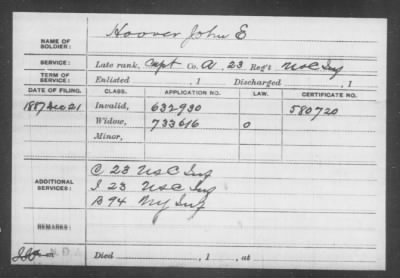 NAME OF SOLDIER: Hoover John E
SERVICE: Late rank, Capt Co. A, 23 Reg't USC Inf
TERM OF SERVICE: Enlisted , 1 Discharged , 1
DATE OF FILING. CLASS. APPLICATION NO. LAW. CERTIFICATE NO.
1887 Invalid, 632930 580720
Widow, 733616 0
Minor,
ADDITIONAL SERVICES: C 23 USC Inf
I 23 USC Inf
B 94 NY Inf
REMARKS:
Died , 1 , at